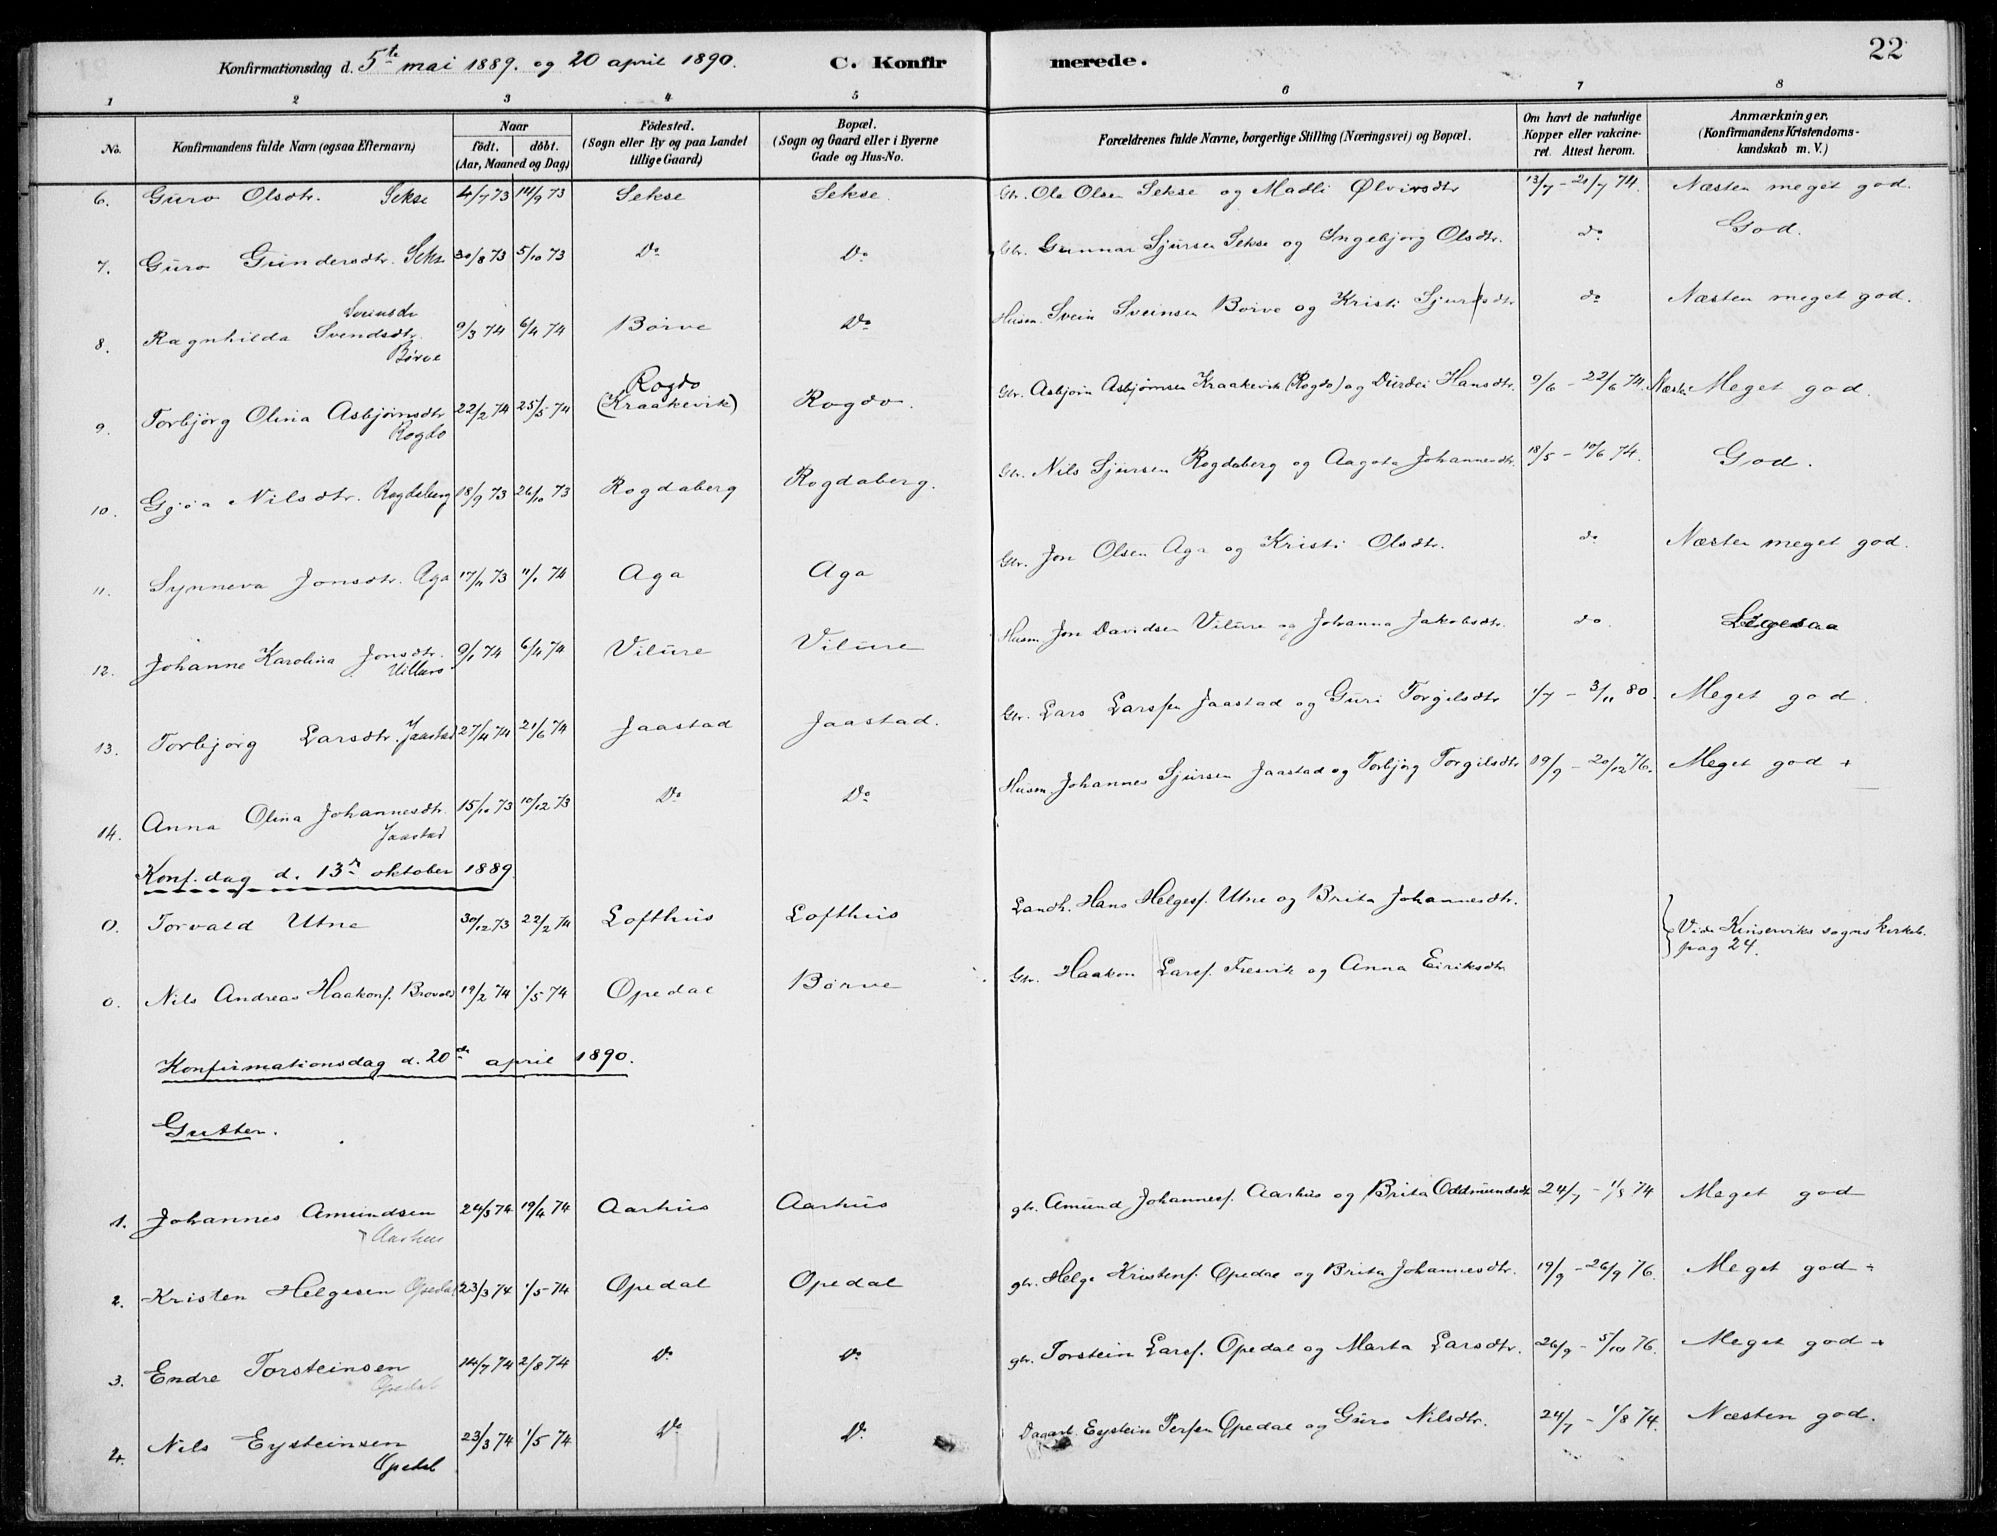 22
Konfirmationsdag d. 5te mai 1889. og 20 april 1890. C. Konfirmerede.
1 2 3 4 5 6 7 8
No. Konfirmandens fulde Navn (ogsaa Efternavn) Naar födt. döbt. (Aar, Maaned og Dag) Födested. (Sogn eller By og paa Landet tillige Gaard) Bopæl. (Sogn og Gaard eller i Byerne Gade og Hus-No. Forældrenes fulde Navne, borgerlige Stilling (Næringsvei) og Bopæl. Om havt de naturlige Kopper eller vakcineret. Attest herom. Anmærkninger. (Konfirmandens Kristendomskundskab m. V.)
6. Guro Olsdtr. Sekse 4/7 73 14/9 73 Sekse Sekse. Gbr. Ole Olsen Sekse og Madli Ølvirsdtr 13/7 - 21/7 74. Næsten meget god.
7. Guro Gundersdtr. Sekse 30/8 73 5/10 73 Do Do Gbr. Gunnar Sjursen Sekse og Ingebjorg Olsdtr. do God.
8. Ragnhilda Svendsdtr. Sveinsdr Börve 9/3 74 6/4 74 Börve Do Husm. Svein Sveinsen Börve og Kristi Sjursdtr do Næsten meget god.
9. Torbjörg Olina Asbjörnsdtr Rogdo 22/2 74 25/5 74 Rogdo (Kraakevik) Rogdo. Gbr. Asbjörn Asbjörnsen Kraakevik (Rogdo) og Durdei Hansdtr. 9/6 - 22/6 74 Næsten Meget god.
10. Gjöa Nilsdtr. Rogdaberg 18/9 73 26/10 73 Rogdaberg Rogdaberg. Gbr. Nils Sjursen Rogdaberg og Aagota Johannesdtr. 18/5 - 10/6 74. God.
11. Synneva Jonsdtr. Aga 17/11 73 11/1 74 Aga Aga Gbr. Jon Olsen Aga og Kristi Olsdtr. do Næsten meget god.
12. Johanne Karolina Jonsdtr. Villure 9/1 74 6/4 74 Vilure Vilure Husm Jon Davidsen Vilure og Johanna Jakobsdtr. do Ligesaa
13. Torbjörg Larsdtr. Jaastad 27/4 74 21/6 74 Jaastad Jaastad. Gbr. Lars Larssen Jaastad og Guri Torgilsdtr 1/7 - 3/11 80. Meget god
14. Anna Olina Johannesdtr. Jaastad 15/10 73 10/12 73 Do Do Husm. Johannes Sjursen Jaastad og Torbjörg Torgilsdtr 19/9 - 20/12 76. Meget god +
Konf. dag d. 13de oktober 1889
0. Torvald Utne 30/12 73 22/2 74 Lofthus Lofthus Landh. Hans Helgesf. Utne og Brita Johannesdtr. Vide Kinserviks sogns kirkeb. pag 24.
0. Nils Andreas Haakonf. Brovold 19/2 74 1/5 74 Opedal Börve Gbr. Haakon Larsf. Fresvik og Anna Eiriksdtr
Konfirmationsdag d. 20de april 1890.
Gutter.
1. Johannes Amundsen Aarhus 24/3 74 19/4 74 Aarhus Aarhus gbr. Amund Johannesf. Aarhus og Brita Oddmundsdtr 24/7 - 1/8 74 Meget god
2. Kristen Helgesen Opedal 23/3 74 1/5 74 Opedal Opedal gbr. Helge Kristenf. Opedal og Brita Johannesdtr. 19/9 - 26/9 76. Meget god ÷
3. Endre Torsteinsen Opedal 14/7 74 2/8 74 Do Do gbr. Torstein Larsf. Opedal og Marta Larsdtr. 26/9 - 5/10 76. Meget god +
4. Nils Eysteinsen Opedal 23/3 74 1/5 74 Do Do Dagarb. Eystein Persen Opedal og Guro Nilsdtr. 24/7 - 1/8 74. Næsten god.